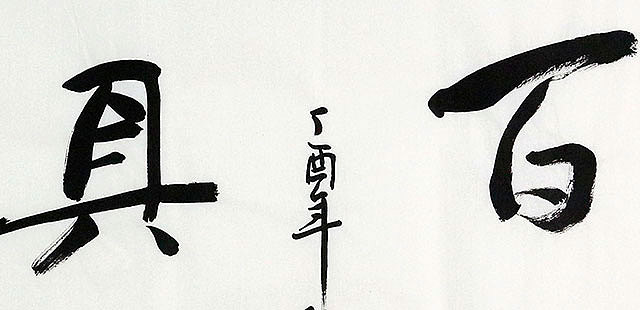 百
丁酉年
具